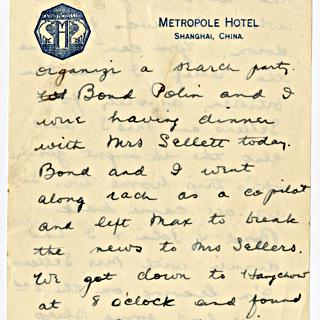 METROPOLE HOTEL
SHANGHAI, CHINA.
organize a search party.
Bond Polin and I
were having dinner
with Mrs Sellett today.
Bond and I went
along each as a copilot
and left Max to break
the news to Mrs Sellers.
We got down to Hangchow
at 8 o'clock and found